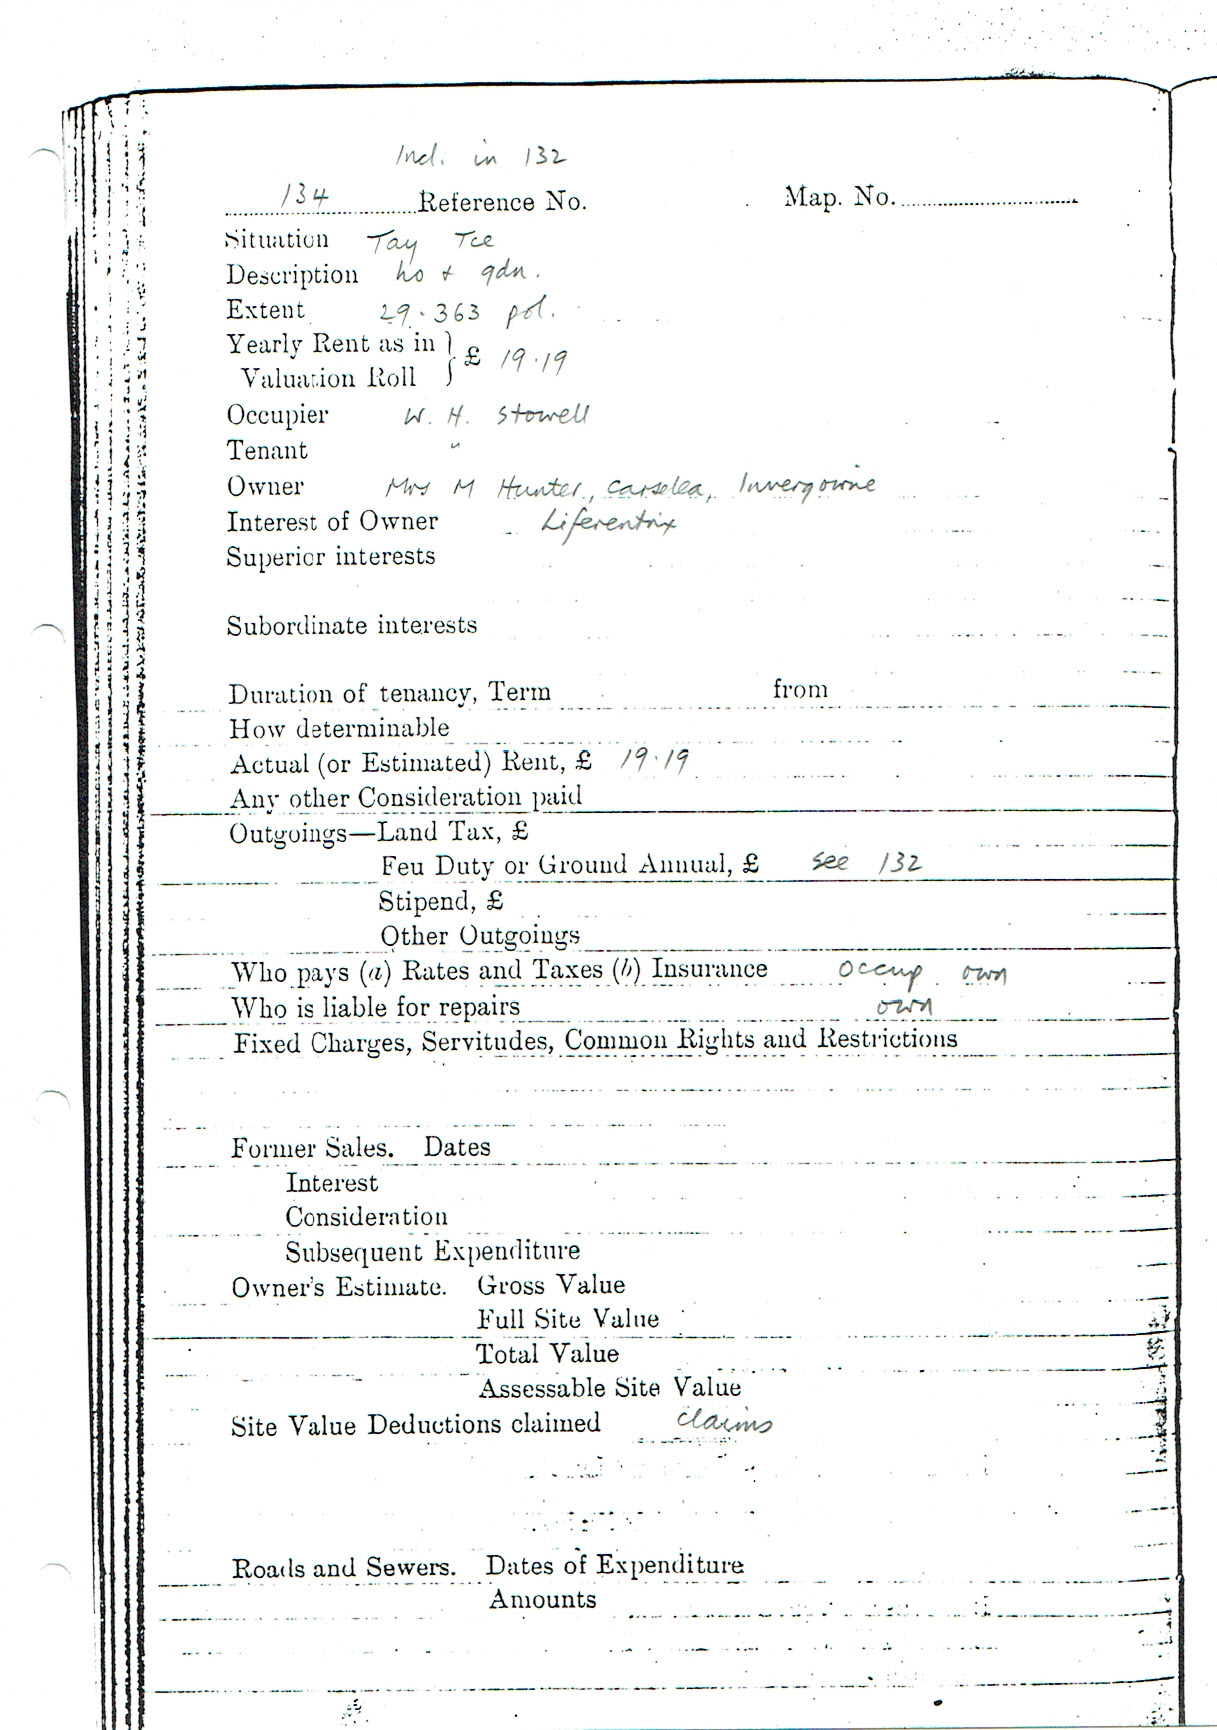 Incl. in 132
134 Reference No. Map. No.
Situation Tay Tce
Description ho + gdn.
Extent 29.363 pol.
Yearly Rent as in } £ 19.19
Valuation Roll
Occupier W. H. Stowell
Tenant "
Owner Mrs M Hunter, Carselea, Invergowrie
Interest of Owner Liferentrix
Superior interests
Subordinate interests
Duration of tenancy, Term from
How determinable
Actual (or Estimated) Rent, £ 19.19
Any other Consideration paid
Outgoings—Land Tax, £
Feu Duty or Ground Annual, £ see 132
Stipend, £
Other Outgoings
Who pays (a) Rates and Taxes (b) Insurance occup own
Who is liable for repairs own
Fixed Charges, Servitudes, Common Rights and Restrictions
Former Sales. Dates
Interest
Consideration
Subsequent Expenditure
Owner's Estimate. Gross Value
Full Site Value
Total Value
Assessable Site Value
Site Value Deductions claimed claims
Roads and Sewers. Dates of Expenditure
Amounts